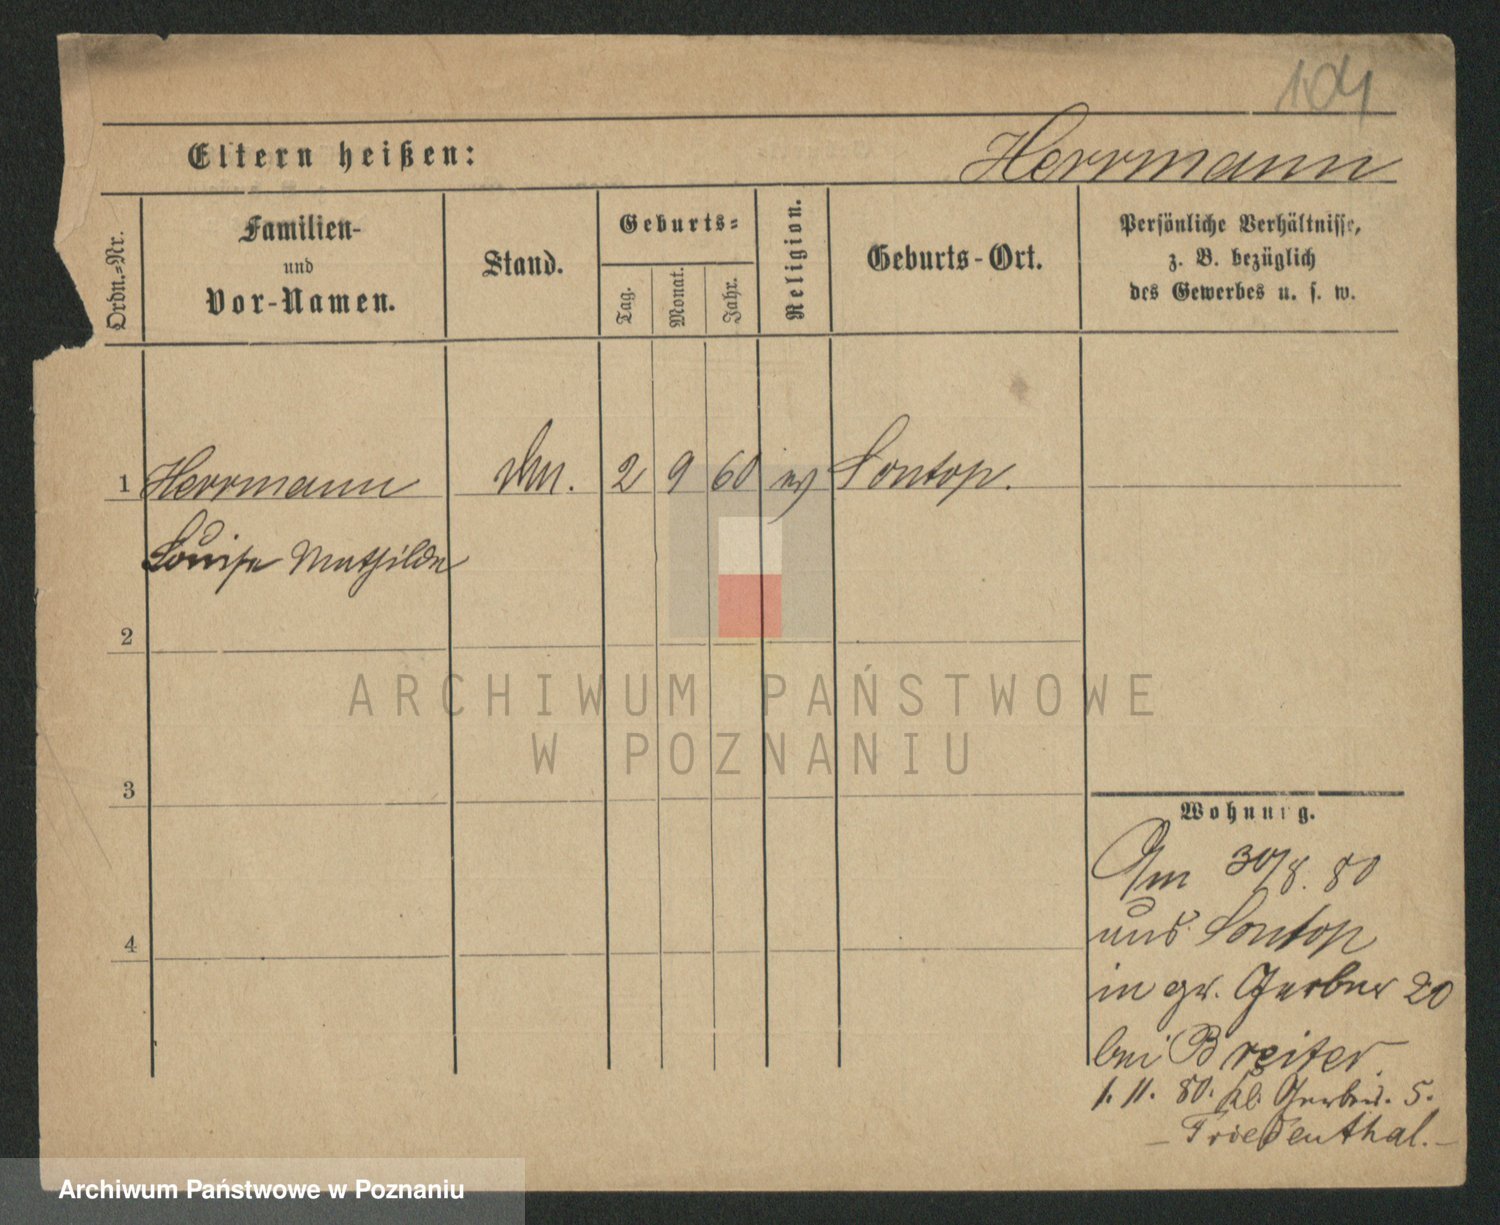 104
Eltern heißen:
Herrmann
Ordn.=Nr.
Familien-
und
Vor-Namen.
Stand.
Geburts=
Tag.
Monat.
Jahr.
Religion.
Geburts-Ort.
Persönliche Verhältnisse,
z. B. bezüglich
des Gewerbes u. s. w.
1 Herrmann 2 9 60 ev Sontop.
Louise Mathilde
2
3
4
Wohnung.
Am 30/8. 80
aus Sontop
in gr. Gerber 20
bei Breiter.
1. 11. 80. kl. Gerbers. 5.
- Friedenthal. -
ARCHIWUM PAŃSTWOWE
W POZNANIU
Archiwum Państwowe w Poznaniu